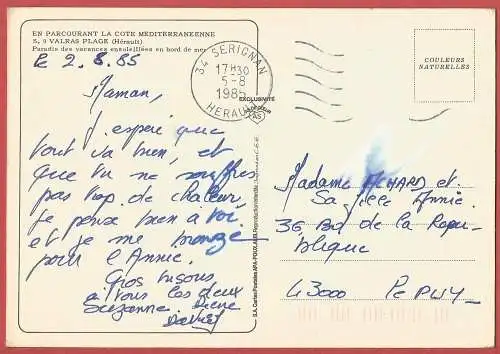 EN PARCOURANT LA COTE MEDITERRANEENNE
S, 9 VALRAS PLAGE (Hérault)
Paradis des vacances ensoleillées en bord de mer
Le 2.8.85
Maman,
J'espère que
tout va bien, et
que tu ne souffres
pas trop de chaleur,
je pense bien à toi
et je me bronze
pour l'Annie.
Gros bisous
à vous les deux
Suzanne
34 SERIGNAN
17H30
5-8
1985
HERAULT
EXCLUSIVITÉ
COULEURS
NATURELLES
Madame ACHARD et
Sa fille Annie.
36, Bd de la Répu-
blique
43000 Le PUY